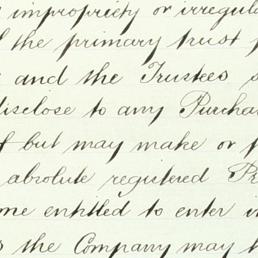 impropriety or irregula
the primary trust
and the Trustees s
disclose to any Purcha
f but may make or
absolute registered P
me entitled to enter in
the Company may t